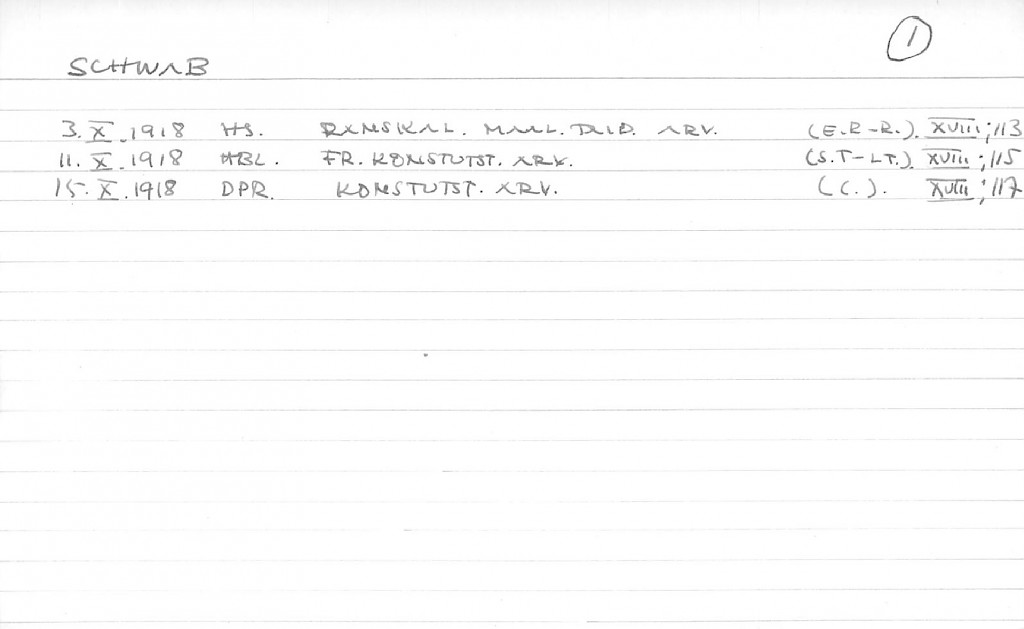 1
SCHWAB
3. X. 1918 HS. RANSKAL. MAAL. TAID. ARV. (E.R-R.). XVIII; 113
11. X. 1918 HBL. FR. KONSTUTST. ARV. (S.T-LT.). XVIII; 115
15. X. 1918 DPR. KONSTUTST. ARV. (C.). XVIII; 117